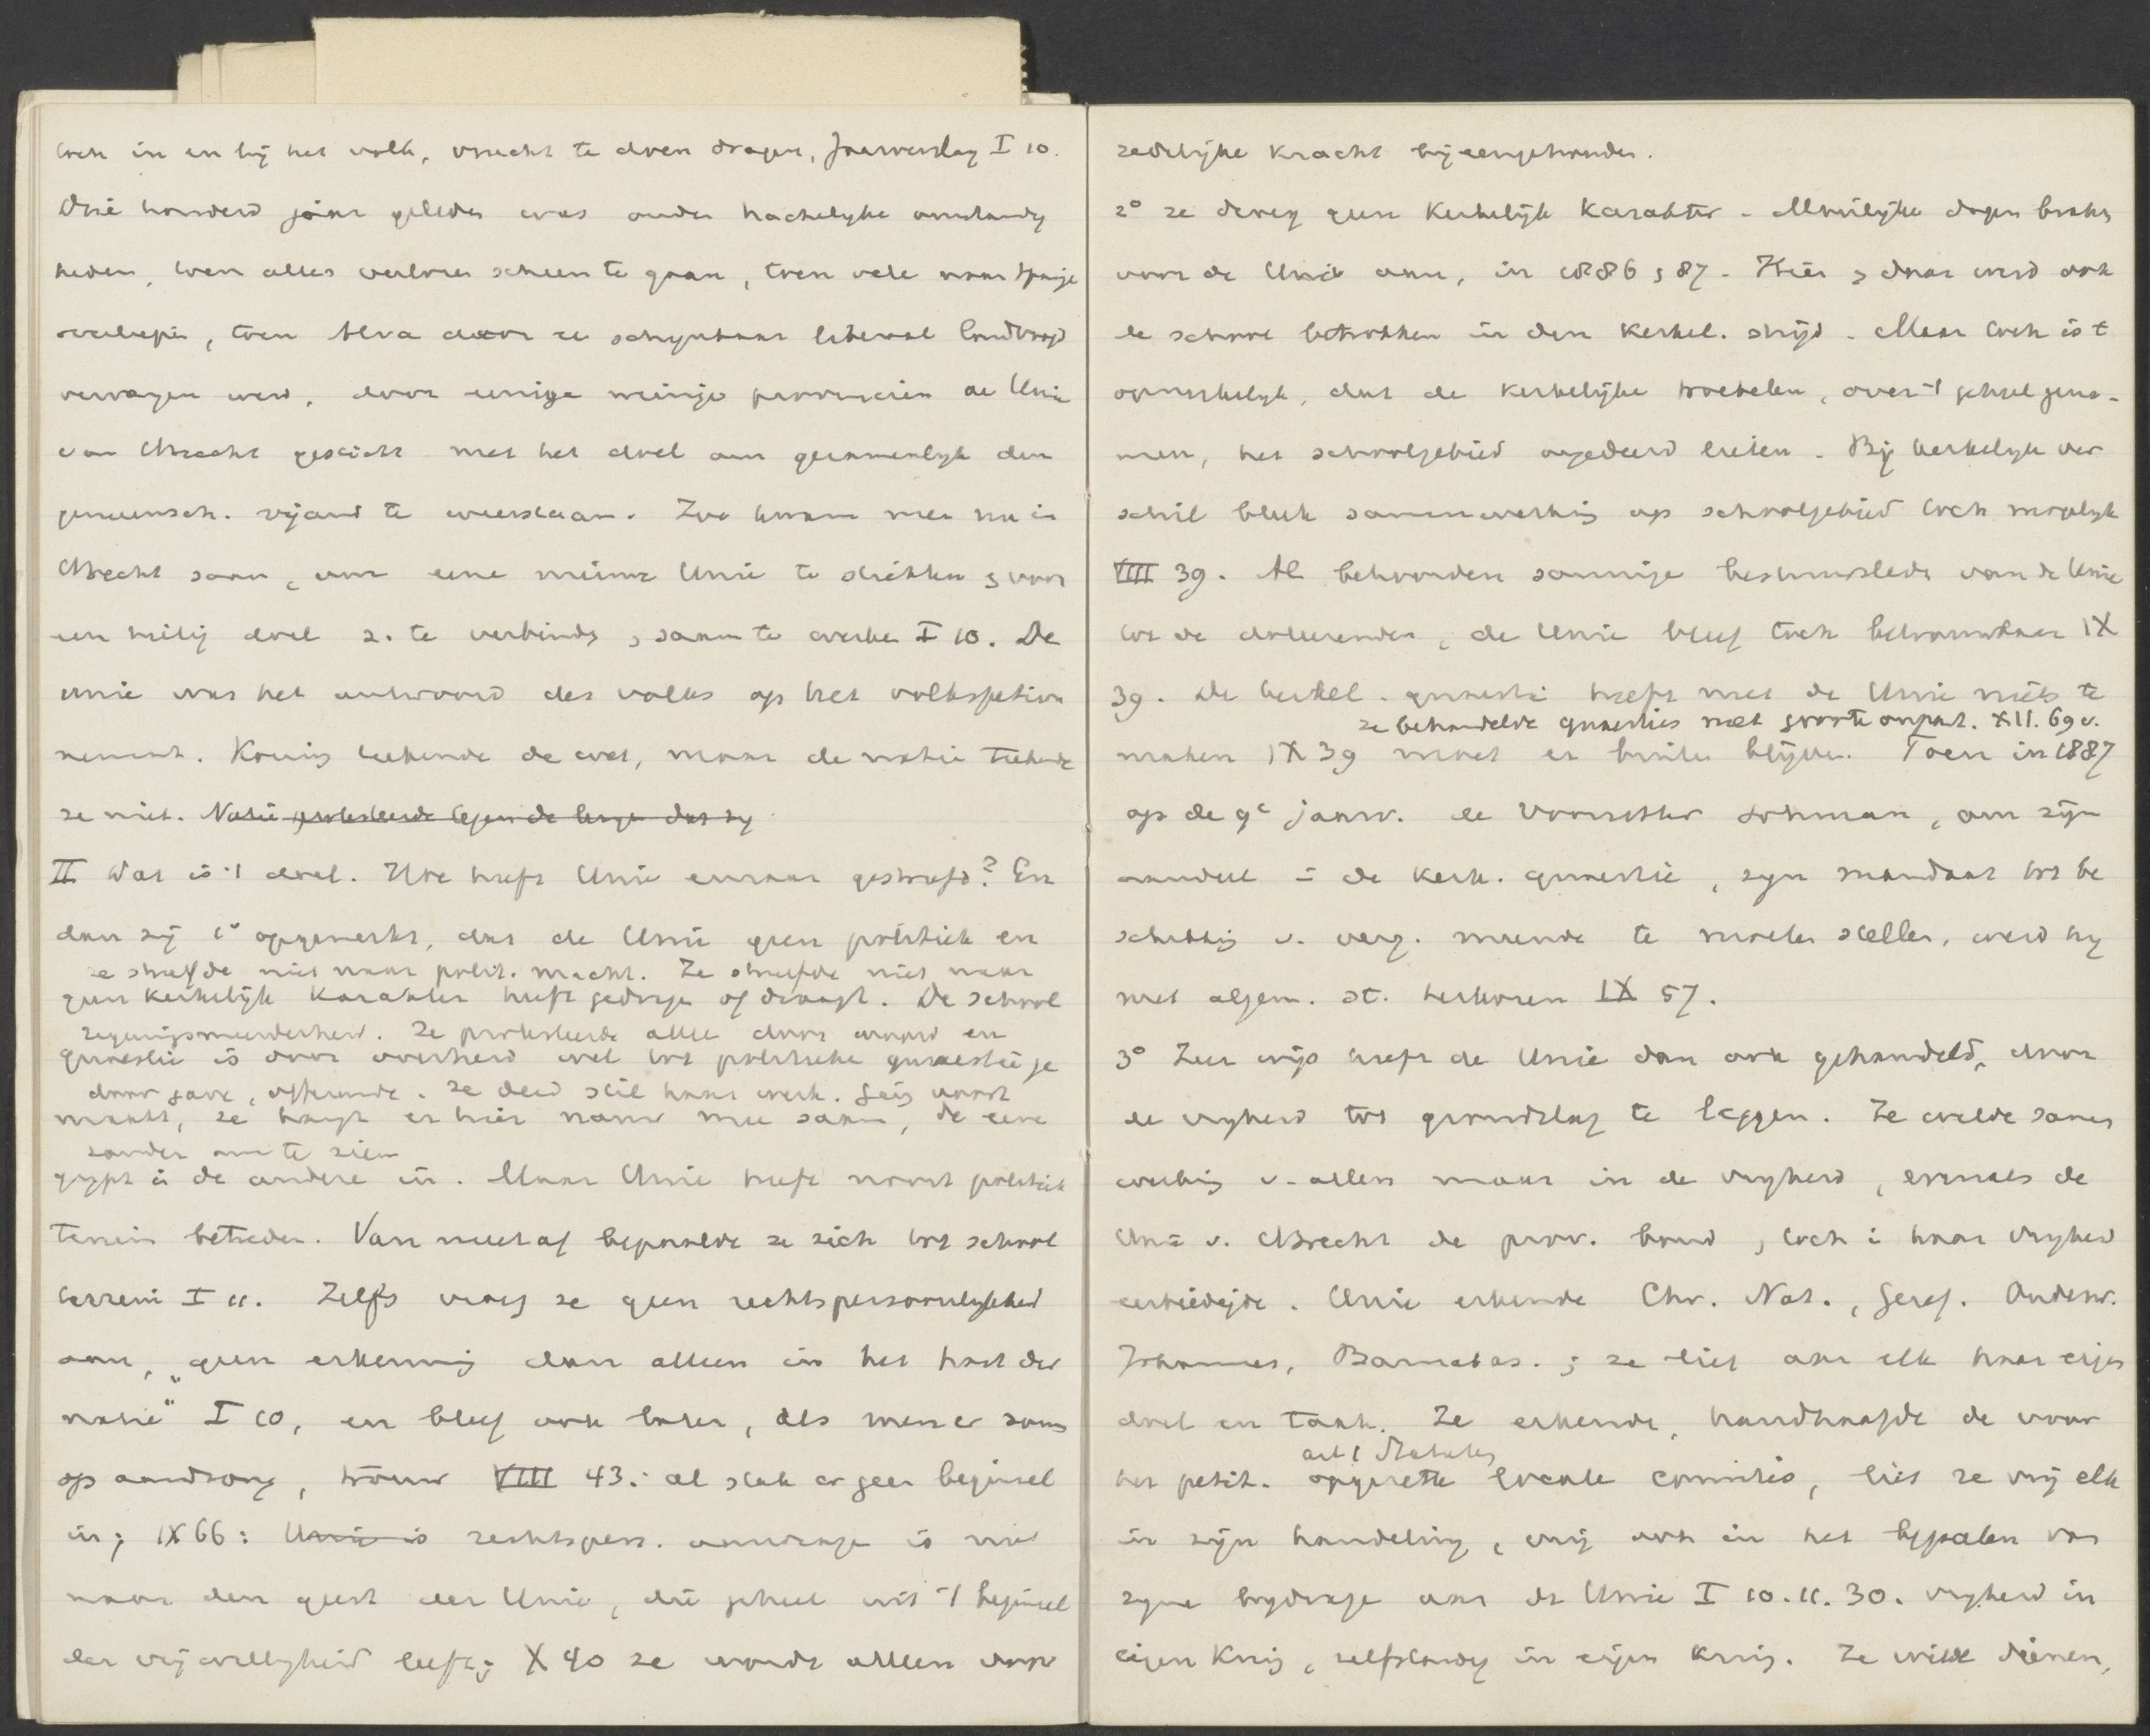 toch in en bij het volk, vrucht te doen dragen, Jaarverslag I 10.
Drie honderd jaar geleden was onder hachelyke omstandig
heden, toen alles verloren scheen te gaan, toen vele naar Spanje
overliepen, toen Alva door een schynbaar liberaal landvoogd
vervangen werd, door eenige weinige provincien de Unie
van Utrecht gesticht met het doel om gezamenlyk den
gemeensch. vijand te weerstaan. Zoo kwam men nu in
Utrecht saam, om eene nieuwe Unie te stichten & voor
een heilig doel z. te verbinden, saam te werken I 10. De
Unie was het antwoord des volks op het volkspetion
nement. Koning teekende de wet, maar de natie teekende
ze niet. Natie protesteerde tegen de leugen dat zy
II Wat is 't doel. Hoe heeft Unie ernaar gestreefd? En
dan zij 1° opgemerkt, dat de Unie geen politiek en
ze streefde niet naar polit. macht. Ze streefde niet naar
geen kerkelijk karakter heeft gedragen of draagt. De school
regeeringsmeerderheid. Ze protesteerde alleen door woord en
quaestie is door overheid wel tot politieke quaestie ge
door gave, offerande. Ze deed stil haar werk. Ging voort
maakt, ze hangt er hier nauw mee saam, de eene
zonder om te zien
grypt in de andere in. Maar Unie heeft nooit politiek
terrein betreden. Van meet af bepaalde ze zich tot school
terrein I 11. Zelfs vroeg ze geen rechtspersoonlykheid
aan, "geen erkenning dan alleen in het hart der
natie" I 10, en bleef ook later, als men er soms
op aandrong, trouw VIII 43: al stak er geen beginsel
in; IX 66: Unie is rechtspers. aanvrage is niet
naar den geest der Unie, die geheel uit 't beginsel
der vrijwilligheid leeft; X 40 ze wordt alleen door
zedelijke kracht bijeengehouden.
2° ze droeg geen kerkelijk karakter. Moeilijke dagen braken
voor de Unie aan, in 1886 & 87. Hier & daar werd ook
de school betrokken in den kerkel. strijd. Maar toch is 't
opmerkelyk, dat de kerkelijke troebelen, over 't geheel geno-
men, het schoolgebied ongedeerd lieten. Bij kerkelyk ver
schil bleek samenwerking op schoolgebied toch mogelyk
VIII 39. Al behoorden sommige bestuursleden van de Unie
tot de doleerenden, de Unie bleef toch betrouwbaar IX
39. De kerkel. quaestie heeft met de Unie niets te
ze behandelde quaesties met groote onpart. XII. 69 v.
maken IX 39 moet er buiten blijven. Toen in 1887
op de 9e jaarv. de Voorzitter Lohman, om zijn
aandeel in de kerk. quaestie, zyn mandaat tot be
schikking v. verg. meende te moeten stellen, werd hy
met algem. st. herkozen IX 57.
3° Zeer wijs heeft de Unie dan ook gehandeld, door
de vryheid tot grondslag te leggen. Ze wilde samen
werking v. allen maar in de vryheid, evenals de
Unie v. Utrecht de prov. bond, toch in haar vryheid
eerbiedigde. Unie erkende Chr. Nat., Geref. Onderw.
Johannes, Barnabas.; ze liet aan elk haar eigen
doel en taak. Ze erkende, handhaafde de voor
art 1 Statuten
het petit. opgerette locale comités, liet ze vrij elk
in zijn handeling, vrij ook in het bepalen van
zyne bydrage aan de Unie I 10.11.30. vryheid in
eigen kring, zelfstandig in eigen kring. Ze wilde dienen,